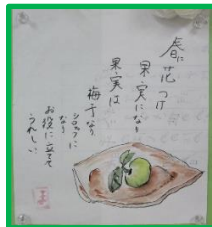 春に花つけ
果実になり
果実は
梅干なり
シロップに
なり
お役に立てて
うれしい